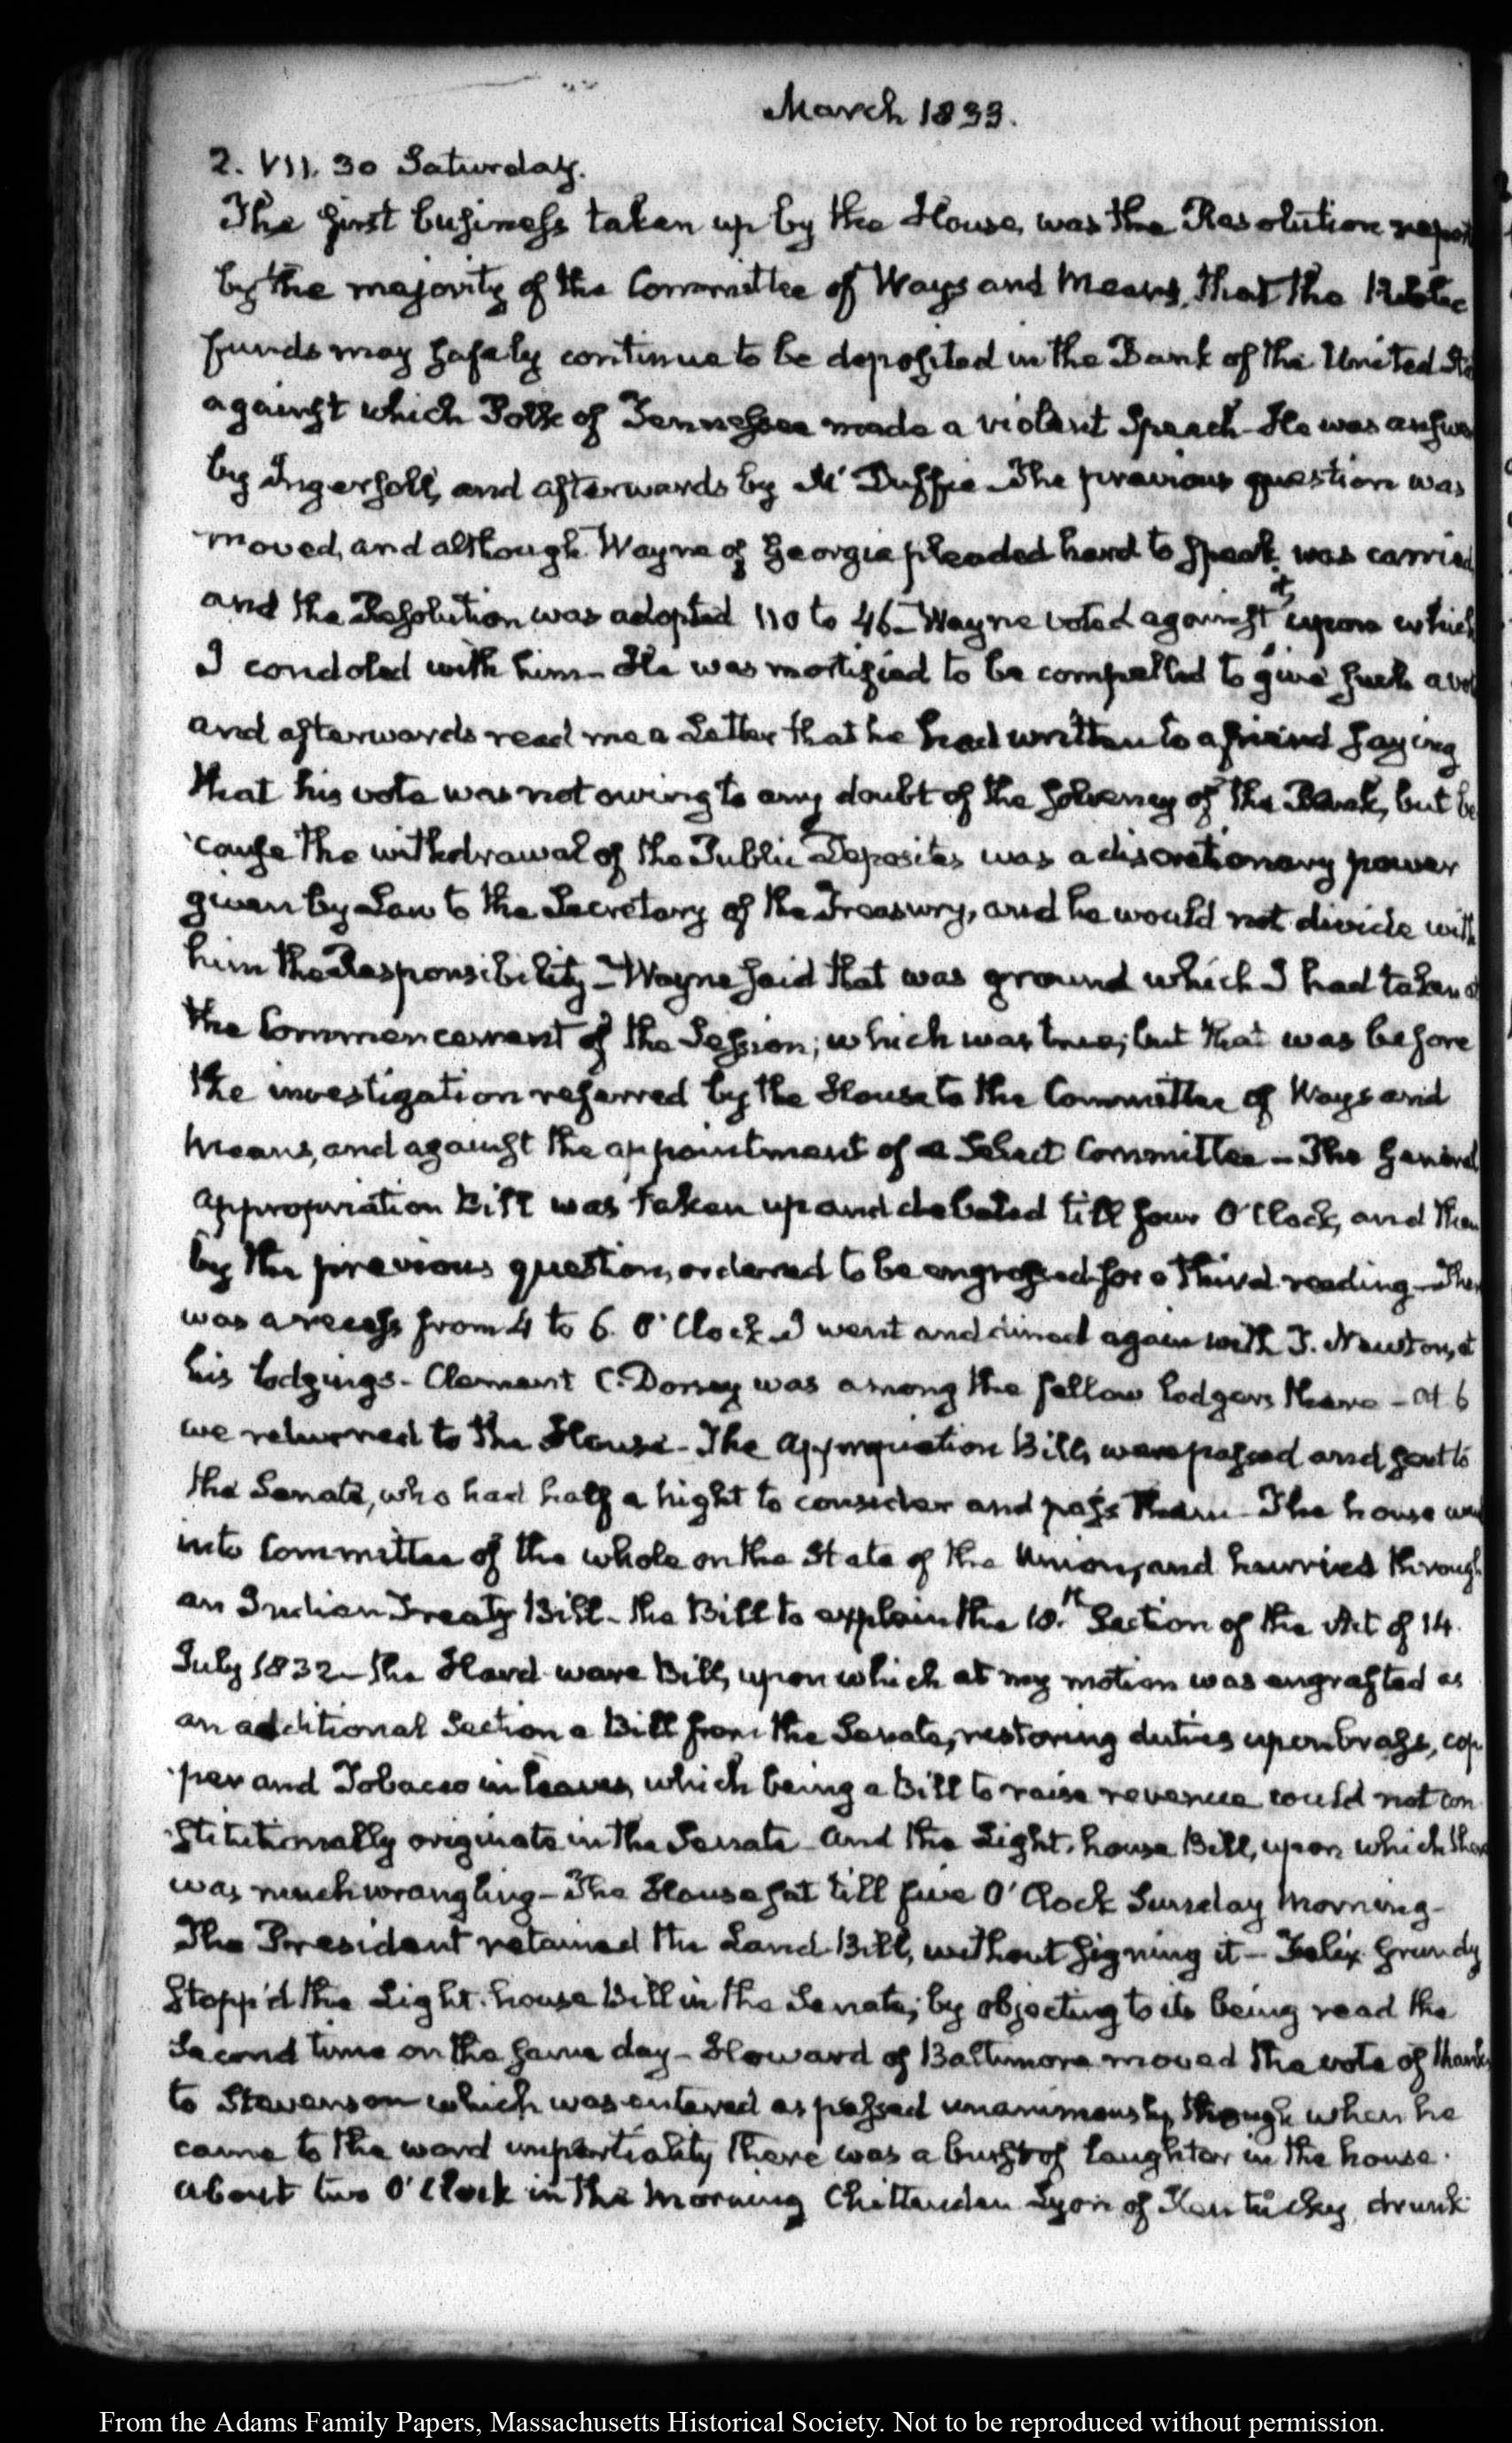 March 1833.
2. VII. 30 Saturday.
The first business taken up by the House, was the Resolution repor
by the majority of the Committee of Ways and Means, that the Public
funds may safely continue to be deposited in the Bank of the United Sta
against which Polk of Tennessee made a violent Speech. He was answe
by Ingersoll, and afterwards by Mc Duffie. The previous question was
moved, and although Wayne of Georgia pleaded hard to speak, was carried
and the Resolution was adopted 110 to 46 – Wayne voted against it, upon which
I condoled with him – He was mortified to be compelled to give such a vo
and afterwards read me a Letter that he had written to a friend saying
that his vote was not owing to any doubt of the solvency of the Bank, but be
cause the withdrawal of the Public Deposites was a discretionary power
given by Law to the Secretary of the Treasury, and he would not divide with
him the Responsibility – Wayne said that was ground which I had taken a
the Commencement of the Session; which was true; but that was before
the investigation referred by the House to the Committee of Ways and
Means, and against the appointment of a Select Committee – The General
Appropriation Bill was taken up and debated till four O'Clock, and then
by the previous question, ordered to be engrossed for a third reading – Ther
was a recess from 4 to 6. O'Clock. I went and dined again with T. Newton, at
his lodgings – Clement C. Dorsey was among the fellow lodgers there – At 6
we returned to the House – The Appropriation Bills were passed and sent to
the Senate, who had half a night to consider and pass them – The house wen
into Committee of the whole on the State of the Union, and hurried through
an Indian Treaty Bill – the Bill to explain the 18.th Section of the Act of 14.
July 1832 – the Hard-ware Bill, upon which at my motion was engrafted as
an additional Section a Bill from the Senate, restoring duties upon brass, cop
per and Tobacco in leaves, which being a Bill to raise revenue could not con
stitutionally originate in the Senate – And the Light-house Bill, upon which ther
was much wrangling – The House sat till five O'Clock Sunday Morning –
The President retained the Land Bill, without signing it – Felix Grundy
stopp'd the Light-house Bill in the Senate; by objecting to its being read the
second time on the same day – Howard of Baltimore moved the vote of thanks
to Stevenson which was entered as passed unanimously, though when he
came to the word impartiality there was a burst of laughter in the house.
About two O'Clock in the Morning Chittenden Lyon of Kentucky, drunk
From the Adams Family Papers, Massachusetts Historical Society. Not to be reproduced without permission.